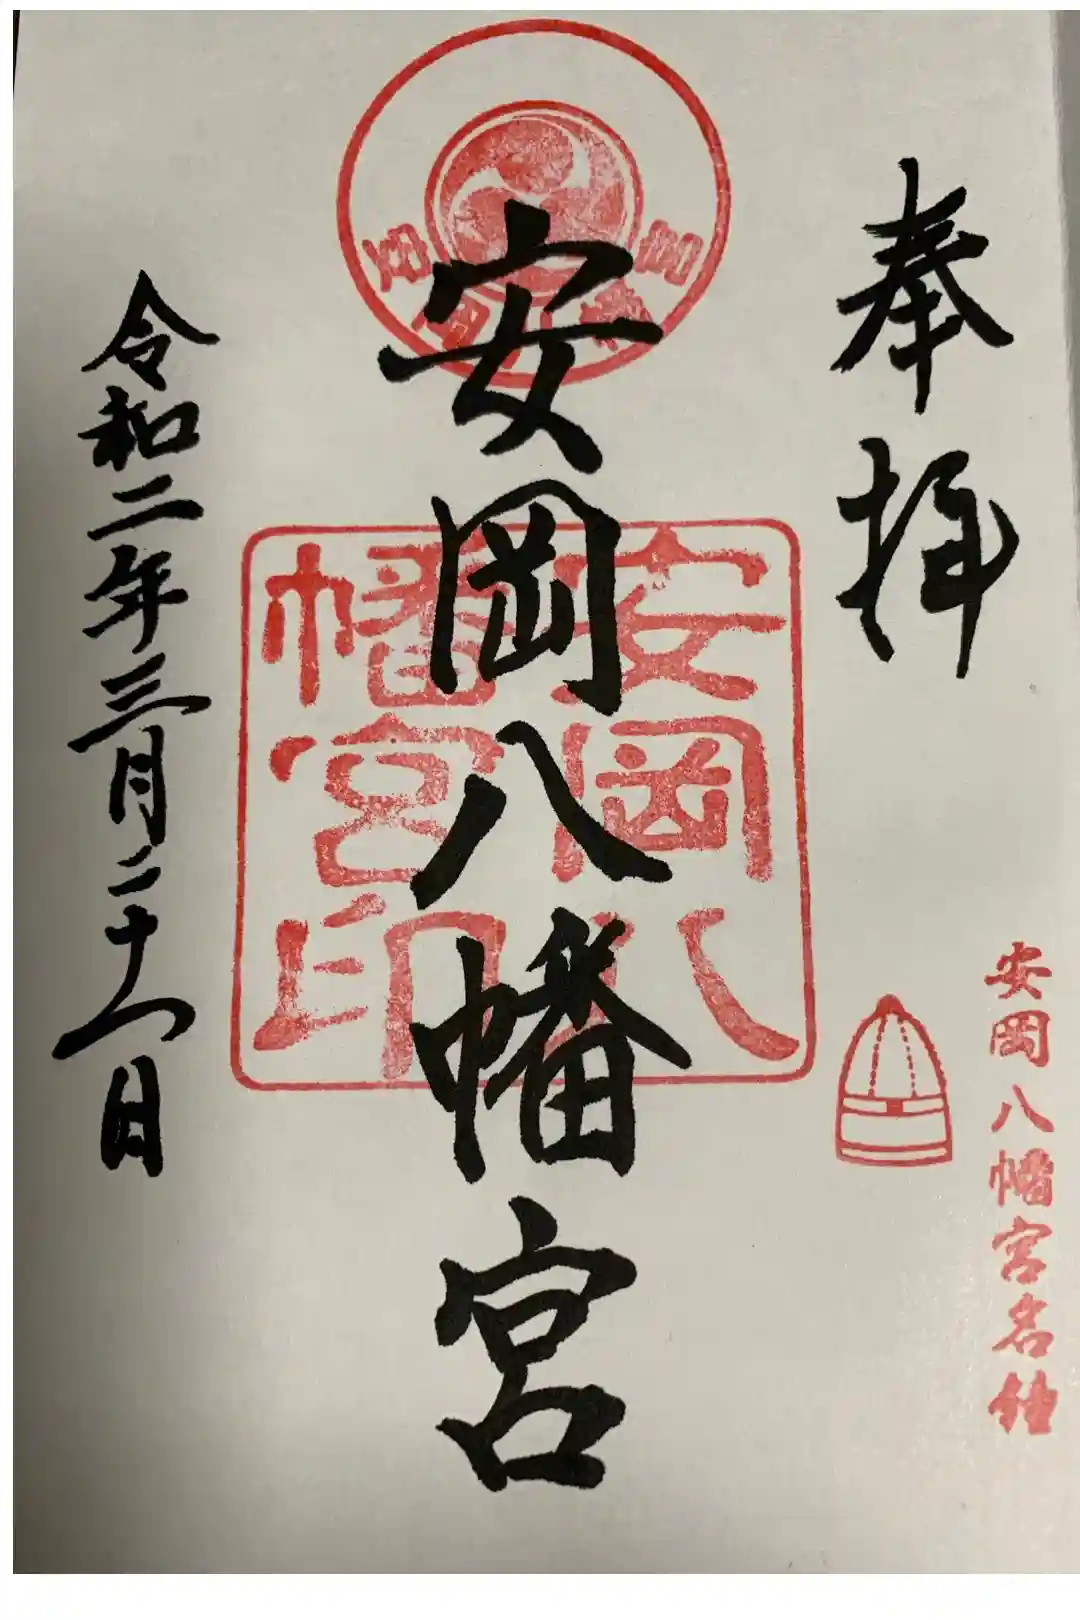 奉拝
安岡八幡宮名鐘
安岡八幡宮
安岡八幡宮
安岡八
幡宮印
令和二年三月二十八日